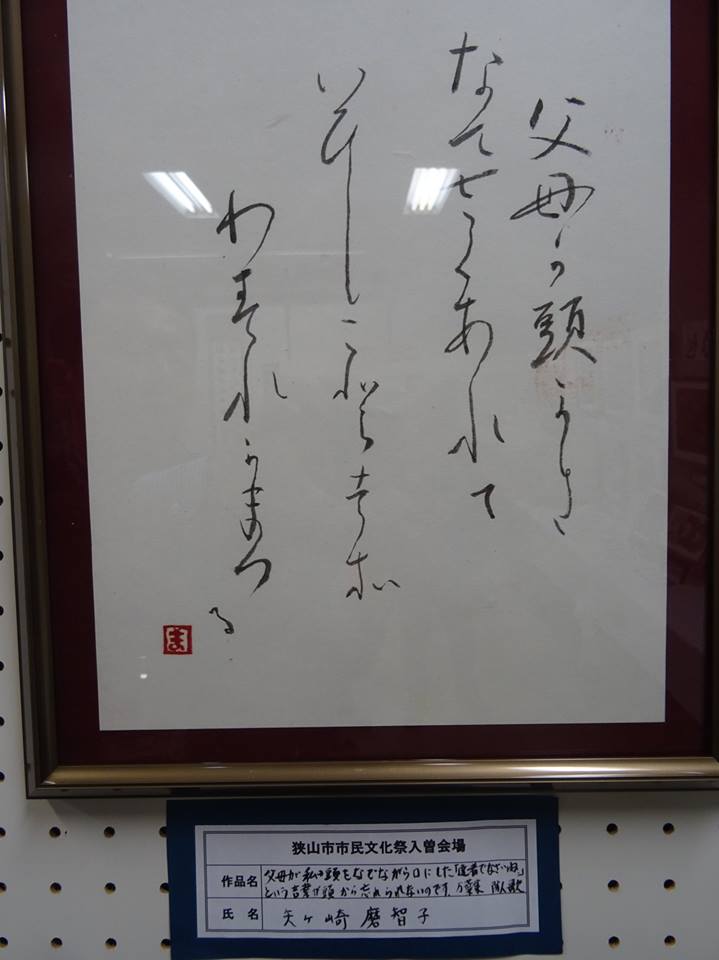 父母か頭かき
なてさくあれて
いひし
わすれかねつる
狭山市市民文化祭入曽会場
作品名 父母が私の頭をなでながら口にした「達者でなさいね」
という言葉が頭から忘れられないのです。万葉集
氏名 矢ヶ崎磨智子